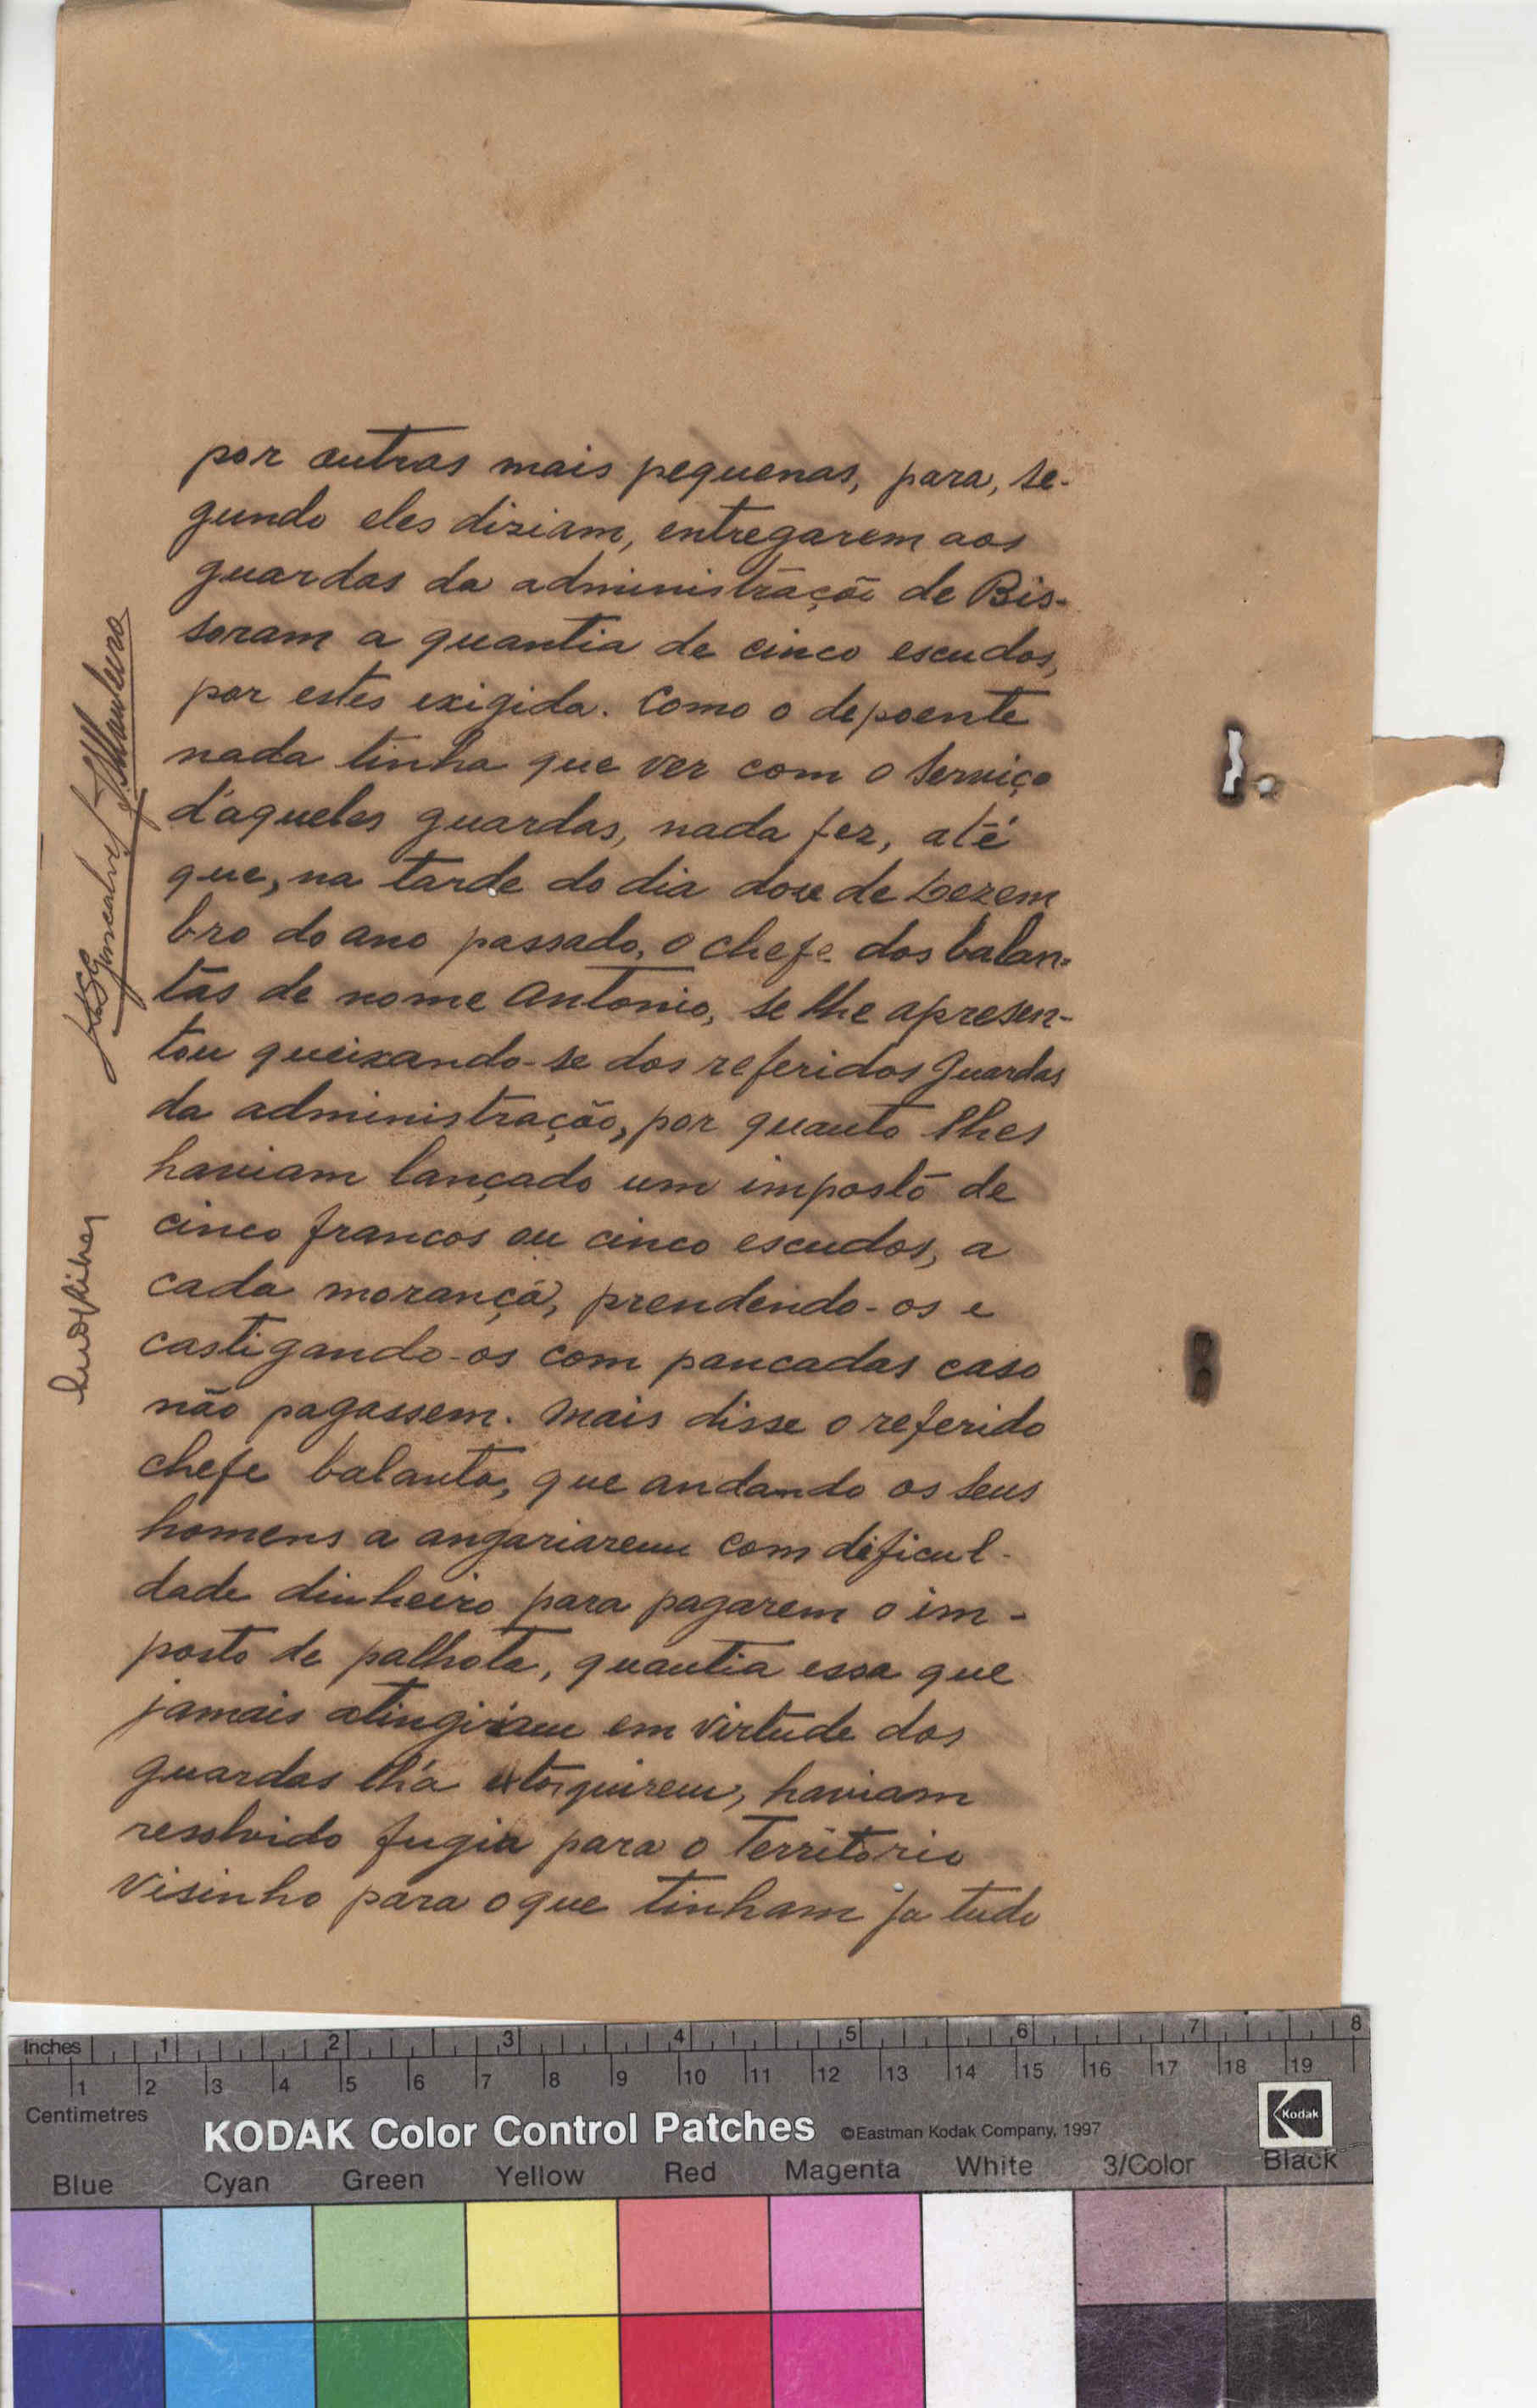 por outras mais pequenas, para, se-
gundo eles diziam, entregarem aos
guardas da administração de Bis-
soram a quantia de cinco escudos,
por estes exigida. Como o depoente
nada tinha que ver com o serviço
d'aqueles guardas, nada fez, até
que, na tarde do dia doze de Dezem
bro do ano passado, o chefe dos balan-
tas de nome Antonio, se lhe apresen-
tou queixando-se dos referidos guardas
da administração, por quanto lhes
haviam lançado um imposto de
cinco francos ou cinco escudos, a
cada morança, prendendo-os e
castigando-os com pancadas caso
não pagassem. Mais disse o referido
chefe balanta, que andando os seus
homens a angariarem com dificul-
dade dinheiro para pagarem o im-
posto de palhota, quantia essa que
jamais atingiriam em virtude dos
guardas lh'a extorquirem, haviam
resolvido fugir para o Territorio
visinho para o que tinham ja tudo
Gonçalves Monteiro
Inches 1 2 3 4 5 6 7 8
1 2 3 4 5 6 7 8 9 10 11 12 13 14 15 16 17 18 19
Centimetres
KODAK Color Control Patches ©Eastman Kodak Company, 1997
Kodak
Blue Cyan Green Yellow Red Magenta White 3/Color Black